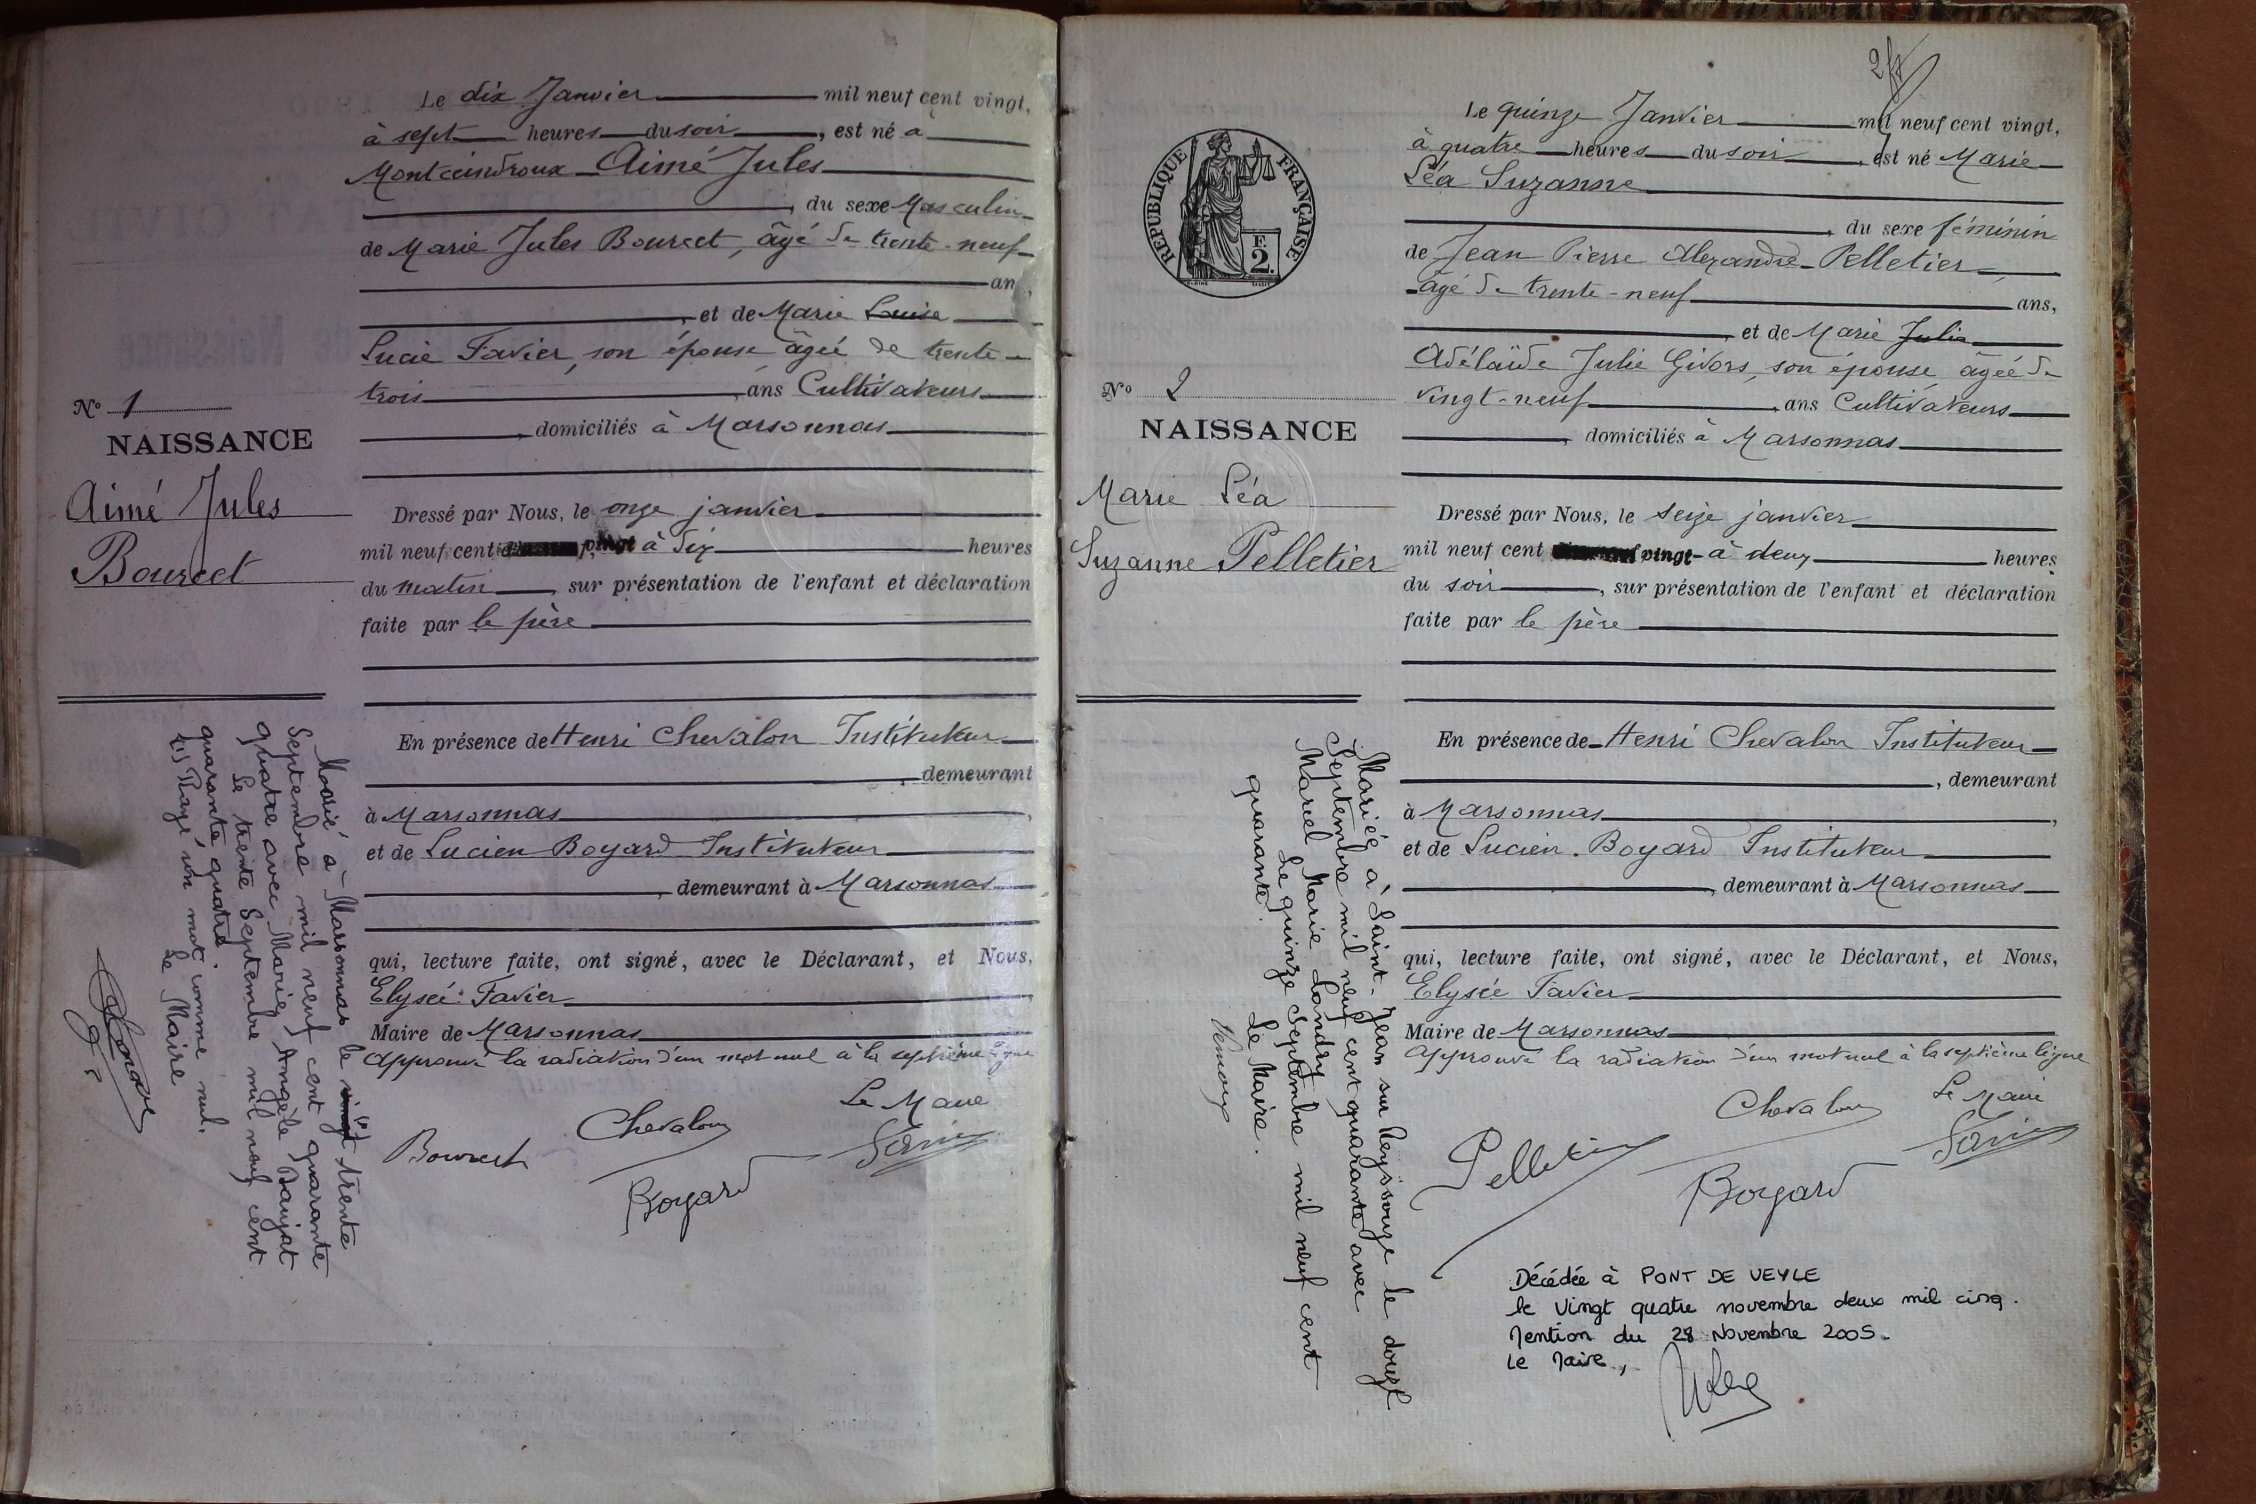 Le dix Janvier mil neuf cent vingt,
à sept heures du soir, est né à
Montceindroux Aimé Jules
, du sexe Masculin
de Marie Jules Bourcet, âgé de trente-neuf
an
, et de Marie Louise
Lucie Favier, son épouse âgée de trente-
trois, ans Cultivateurs
, domiciliés à Marsonnas
N° 1
NAISSANCE
Aimé Jules
Bourcet
Dressé par Nous, le onze janvier
mil neuf cent vingt à dix heures
du matin, sur présentation de l'enfant et déclaration
faite par le père
En présence de Henri Chevalon Instituteur
, demeurant
à Marsonnas
et de Lucien Boyard Instituteur
, demeurant à Marsonnas
qui, lecture faite, ont signé, avec le Déclarant, et Nous,
Elysée Favier
Maire de Marsonnas
Approuvé la radiation d'un mot nul à la septième ligne
Le Maire
Bourcet
Chevalon
Boyard
Favier
Marié à Marsonnas le vingt (1) trente
Septembre mil neuf cent quarante
quatre avec Marie Angèle Baujat
Le trente Septembre mil neuf cent
quarante quatre.
(1) Rayé un mot comme nul.
Le Maire
2
Le quinze Janvier mil neuf cent vingt,
à quatre heures du soir, est né Marie
Léa Suzanne
, du sexe féminin
de Jean Pierre Alexandre Pelletier,
âgé de trente-neuf ans,
et de Marie Julie
Adélaïde Julie Givors, son épouse, âgée de
vingt-neuf, ans Cultivateurs
, domiciliés à Marsonnas
REPUBLIQUE FRANÇAISE
F.
2.
N° 2
NAISSANCE
Marie Léa
Suzanne Pelletier
Dressé par Nous, le seize janvier
mil neuf cent vingt à deux heures
du soir, sur présentation de l'enfant et déclaration
faite par le père
En présence de Henri Chevalon Instituteur
, demeurant
à Marsonnas,
et de Lucien Boyard Instituteur
, demeurant à Marsonnas
qui, lecture faite, ont signé, avec le Déclarant, et Nous,
Elysée Favier
Maire de Marsonnas
Approuvé la radiation d'un mot nul à la septième ligne
Le Maire
Chevalon
Pelletier
Boyard
Favier
Mariée à Saint-Jean sur Reyssouze le douze
Septembre mil neuf cent quarante avec
Marcel Marie Landry
Le quinze Septembre mil neuf cent
quarante. Le Maire.
Décédée à PONT DE VEYLE
le vingt quatre novembre deux mil cinq.
Mention du 28 Novembre 2005.
Le Maire,